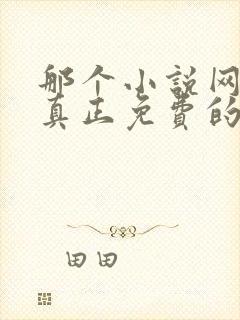 那个小说网
真正免费的
田田